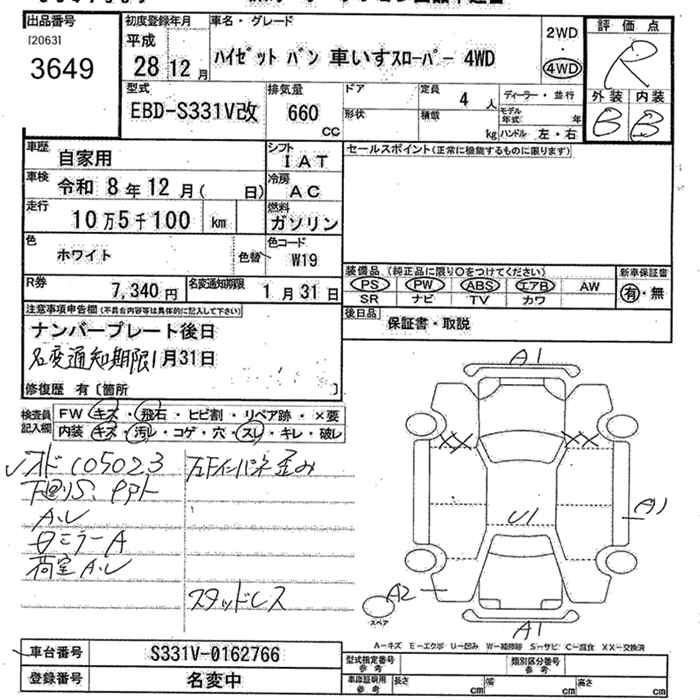 出品番号
[2063]
3649
初度登録年月
平成
28年12月
車名・グレード
ハイゼット バン 車いすスローパー 4WD
2WD
・
4WD
評価点
R
外装 内装
B B
型式
EBD-S331V改
排気量
660
cc
ドア
形状
定員
4 人
積載
kg
ディーラー・並行
モデル年式 年
ハンドル 左・右
車歴
自家用
シフト
IAT
車検
令和 8年12月( 日)
冷房
AC
走行
10万5千100 km
燃料
ガソリン
色
ホワイト
色替
色コード
W19
R券
7,340円
名変通知期限
1月31日
セールスポイント(正常に機能するものに限ります)
装備品(純正品に限り○をつけてください)
PS PW ABS エアB AW
SR ナビ TV カワ
新車保証書
有・無
後日品
保証書・取説
注意事項申告欄(不具合内容等は具体的に記入して下さい)
ナンバープレート後日
名変通知期限1月31日
修復歴 有〔箇所 〕
検査員記入欄
FW キズ・飛石・ヒビ割・リペア跡・×要
内装 キズ・汚レ・コゲ・穴・スレ・キレ・破レ
105023
左Fインパネ歪み
下回りS.
A.U
ミラーA
荷室A.U
スタッドレス
A1
XX
XX
A1
U1
A2
A1
スペア
A-キズ E-エクボ U-凹み W-補修跡 S-サビ C-腐食 XX-交換済
車台番号
S331V-0162766
登録番号
名変中
型式指定番号
参考
類別区分番号
参考
車庫証明用
参考
長さ cm
幅 cm
高さ cm